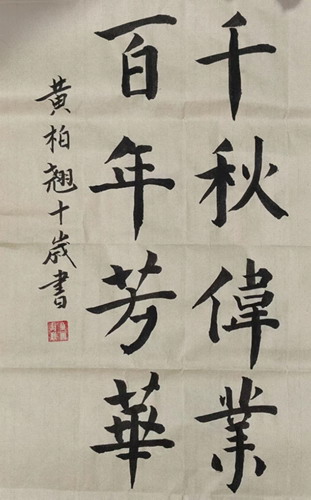 千秋偉業
百年芳華
黃柏翘十歲書